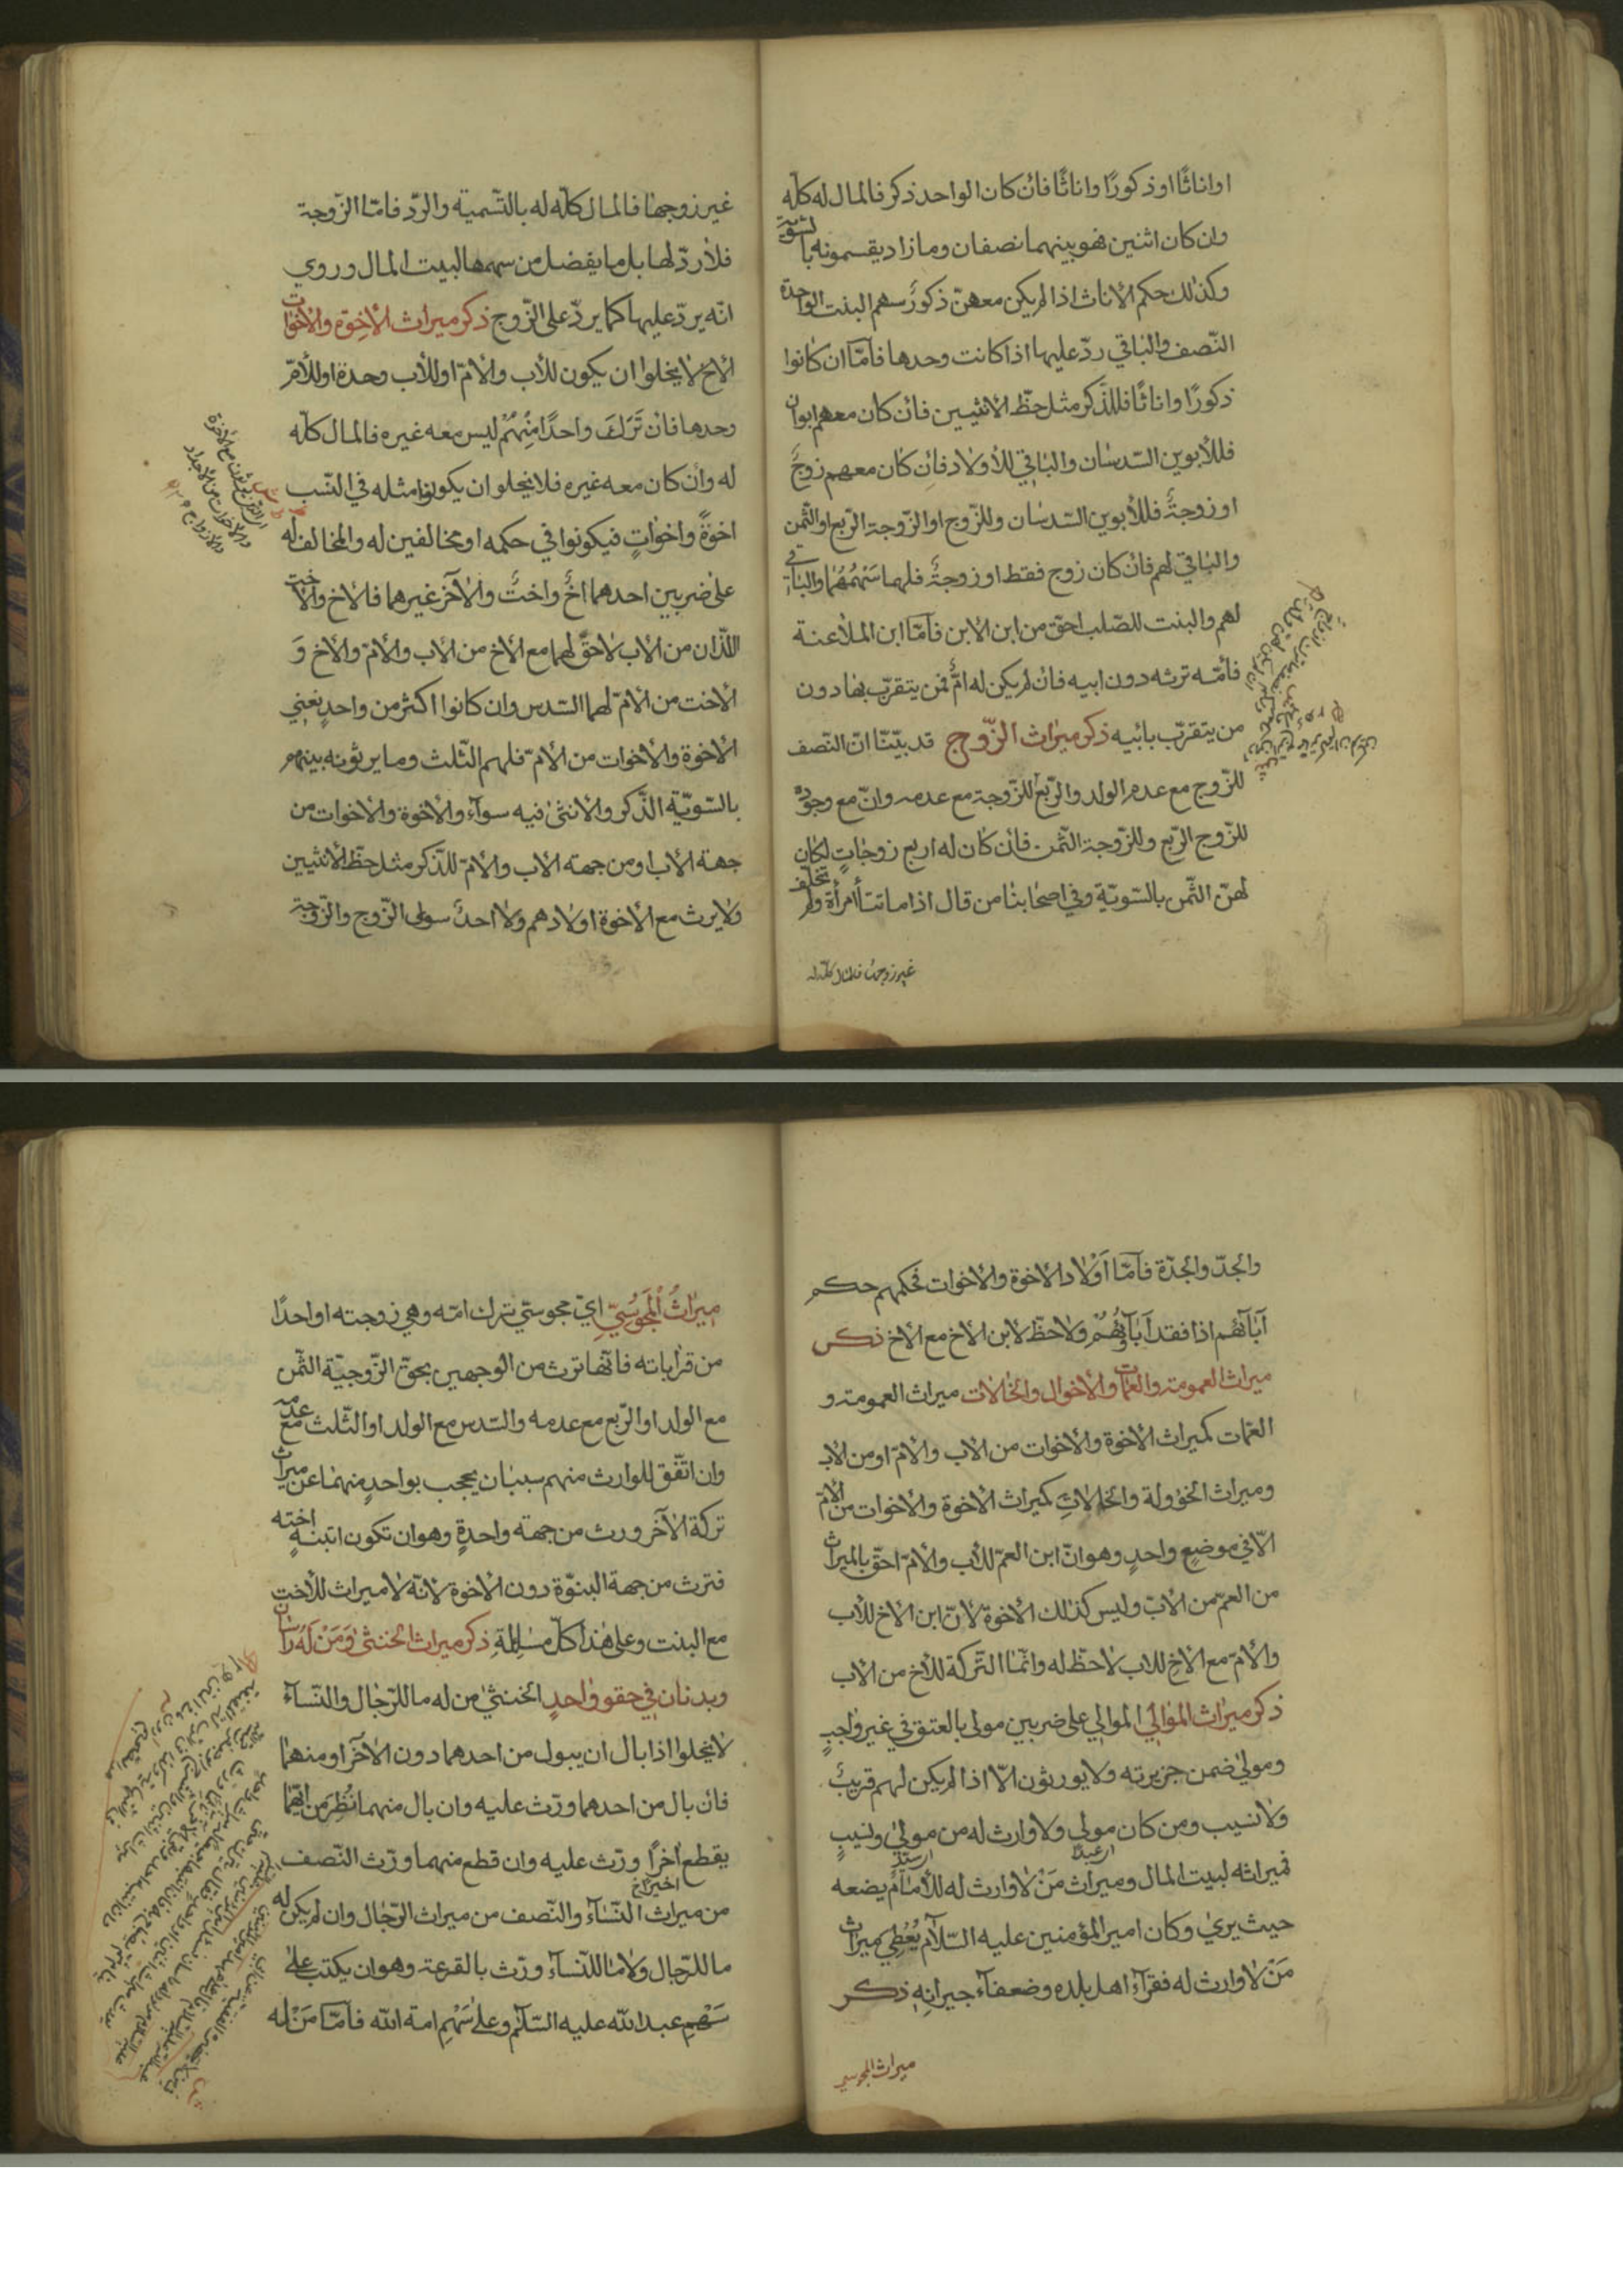 اواناثًا او ذكورًا واناثًا فان كان الواحد ذكر فالمال له كلّه
وان كان اثنين فهو بينهما نصفان وما زاد يقسمونه بالسّويّة
وكذلك حكم الأناث اذا لم يكن معهنّ ذكورٌ سهم البنت الواحدة
النّصف والباقي ردّ عليها اذا كانت وحدها فأمّا ان كانوا
ذكورًا واناثًا فللذّكر مثل حظّ الأنثيين فان كان معهم ابوان
فللأبوين السّدسان والباقي للأولاد فان كان معهم زوجٌ
او زوجةٌ فللأبوين السّدسان وللزّوج او الزّوجة الرّبع او الثّمن
والباقي لهم فان كان زوج فقط او زوجةٌ فلهما سَهْمُهُما والباقي
لهم والبنت للصّلب احقّ من ابن الابن فأمّا ابن الملاعنة
فأمّه ترثه دون ابيه فان لم يكن له امٌّ فمن يتقرّب بها دون
من يتقرّب بابيه ذكر ميراث الزّوج قد بيّنّا انّ النّصف
للزّوج مع عدم الولد والرّبع للزّوجة مع عدمه وانّ مع وجوده
للزّوج الرّبع وللزّوجة الثّمن فان كان له اربع زوجاتٍ لكان
لهنّ الثّمن بالسّويّة وفي اصحابنا من قال اذا ماتت امرأة ولم تخلّف
غير زوجها فالمال كلّه له
غير زوجها فالمال كلّه له بالتّسمية والرّد فامّا الزّوجة
فلا ردّ لها بل ما يفضل من سهمها لبيت المال وروي
انّه يردّ عليها كما يردّ على الزّوج ذكر ميراث الأخوة والأخوات
الأخ لا يخلوا ان يكون للأب والأمّ او للأب وحدة او للأمّ
وحدها فان تَرَكَ واحدًا مِنْهُمْ ليس معه غيره فالمال كلّه
له وان كان معه غيره فلا يخلو ان يكونوا مثله في النّسب
اخوةً واخواتٍ فيكونوا في حكمه او مخالفين له والمخالف له
على ضربين احدهما اخٌ واختٌ والآخر غيرهما فالاخ والأخت
اللّذان من الأب لا حقّ لهما مع الأخ من الأب والأمّ والأخ وَ
الأخت من الأمّ لهما السّدس وان كانوا اكثر من واحدٍ نعني
الأخوة والأخوات من الأمّ فلهم الثّلث وما يرثونه بينهم
بالسّويّة الذّكر والأنثى فيه سوآء والأخوة والأخوات من
جهة الأب او من جهة الأب والأمّ للذّكر مثل حظّ الأنثيين
ولا يرث مع الأخوة اولادهم ولا احدٌ سوى الزّوج والزّوجة
والجدّ والجدّة فأمّا أولاد الأخوة والأخوات فحكمهم حكم
آبآئهُم اذا فقد آبآؤُهُمْ ولا حظّ لابن الأخ مع الأخ ذكر
ميراث العمومة والعمّات والأخوال والخالات ميراث العمومة و
العمّات كميراث الأخوة والأخوات من الأب والأمّ او من الأب
وميراث الخؤولة والخالاتِ كميراث الأخوة والأخوات من الأمّ
الّا في موضعٍ واحدٍ وهو انّ ابن العمّ للأب والأمّ احقّ بالميراث
من العمّ من الأب وليس كذلك الأخوة لأنّ ابن الأخ للأب
والأمّ مع الأخ للاب لا حظّ له وانّما التّركة للأخ من الأب
ذكر ميراث الموالي الموالي على ضربين مولى بالعتق في غير واجبٍ
ومولى ضمن جريرته ولا يورثون الّا اذا لم يكن لهم قريبٌ
ولا نسيب ومن كان مولى ولا وارث له من مولىً ونسيبٍ
فميراثه لبيت المال وميراث مَنْ لا وارث له للأمام يضعه
حيث يرى وكان امير المؤمنين عليه السّلام يُعْطِي ميراث
مَنْ لا وارث له فقرآء اهل بلده وضعفآء جيرانِهِ ذكر
ميراث المجوسي
ميراثُ المَجُوسيِّ ايّ مجوسيّ ترك امّه وهي زوجته او احدًا
من قراباته فانّها ترث من الوجهين بحقّ الزّوجيّة الثّمن
مع الولد او الرّبع مع عدمه والسّدس مع الولد او الثّلث مع عدمه
وان اتّفق للوارث منهم سببان يحجب بواحدٍ منهما عن ميراث
تركة الآخر ورث من جهة واحدةٍ وهو ان تكون ابنته اخته
فترث من جهة البنوّة دون الأخوة لانّه لا ميراث للأخت
مع البنت وعلى هذا كلّ مسئلةٍ ذكر ميراث الخنثى وَمَنْ لَهُ رأسان
وبدنان في حقوٍ واحدٍ الخنثى من له ما للرّجال والنّسآء
لا يخلوا اذا بال ان يبول من احدهما دون الآخر او منهما
فان بال من احدهما ورّث عليه وان بال منهما نُظِرَ من ايّهما
يقطع اخرًا ورّث عليه وان قطع منهما ورّث النّصف
من ميراث النّسآء والنّصف من ميراث الرّجال وان لم يكن له
ما للرّجال ولا ما للنّسآء ورّث بالقرعة وهو ان يكتب على
سَهْمٍ عبد الله عليه السّلام وعلى سَهْمٍ امة الله فأمّا مَنْ له